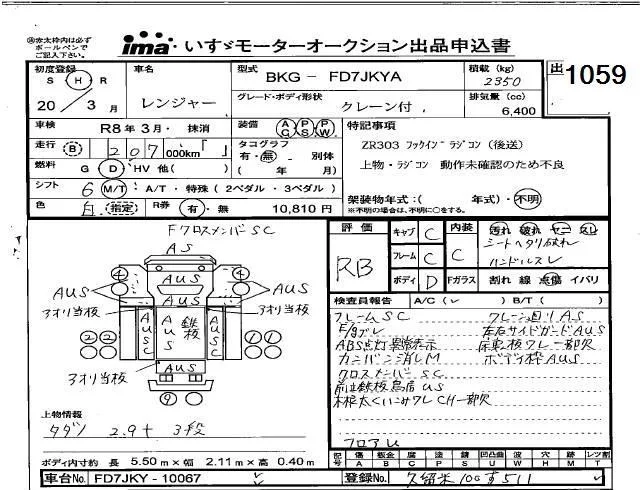 ㊟赤太枠内は必ず
ボールペンで
ご記入下さい。
ima・いすゞモーターオークション出品申込書
出 1059
初度登録
S H R
20/3月
車名
レンジャー
型式
BKG- FD7JKYA
グレード・ボディ形状
クレーン付
積載(kg)
2350
排気量(cc)
6,400
車検
R8年3月・抹消
装備
AC PS PW
特記事項
走行
B 207 000km「 」
タコグラフ
有・無・別体
( 年 月)
ZR303 フックイン ラジコン (後送)
上物・ラジコン 動作未確認のため不良
燃料
G D HV 他( )
シフト
6 M/T: A/T・特殊(2ペダル・3ペダル)
色
白 指定
R券
有・無
10,810円
架装物年式:( 年式)・不明
※不明の場合は、不明に〇をする。
Fクロスメンバ SC
AS
AUS
④ ④
AUS AUS
AUS
3オリ当板 3オリ当板
AUSC AUS 鉄板 AUSC
② ② ① ①
AUS
3オリ当板
⑨
評価
RB
キャブ C
フレーム C
ボディ D
内装 C
Fガラス
汚れ 破れ ヤニ スレ
シートヘタリ破れ
ハンドルスレ
割れ 線 点傷 イバリ
検査員報告
A/C(レ) B/T( )
フレームSC
ABS点灯異常表示
クロスメンバ SC
左右サイドガードAUS
ボディ枠AUS
フロアU
上物情報
タダノ 2.9t 3段
ボディ内寸約 長 5.50m×幅 2.11m×高 0.40m
記号
傷 A
板金 B
腐 C
塗 P
錆 S
凹凸曲 U
波 W
穴 H
跡 M
レンズ割 T
車台No.
FD7JKY-10067
登録No.
久留米100す511